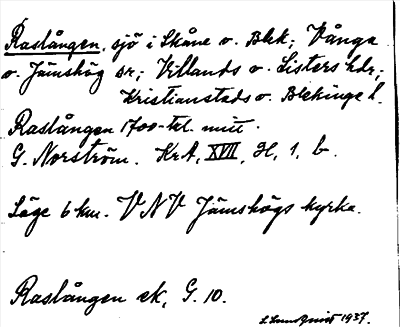 Raslången, sjö i Skåne o. Blek; Vånga
o. Jämshög sr; Villands o. Listers hdr;
Kristianstads o. Blekinge l.
Raslången 1700-tal. mitt.
G. Norström. KrA, XVII, H, 1, b.
Läge 6 km. V N V Jämshögs kyrka.
Raslången ek, G. 10.
1937.